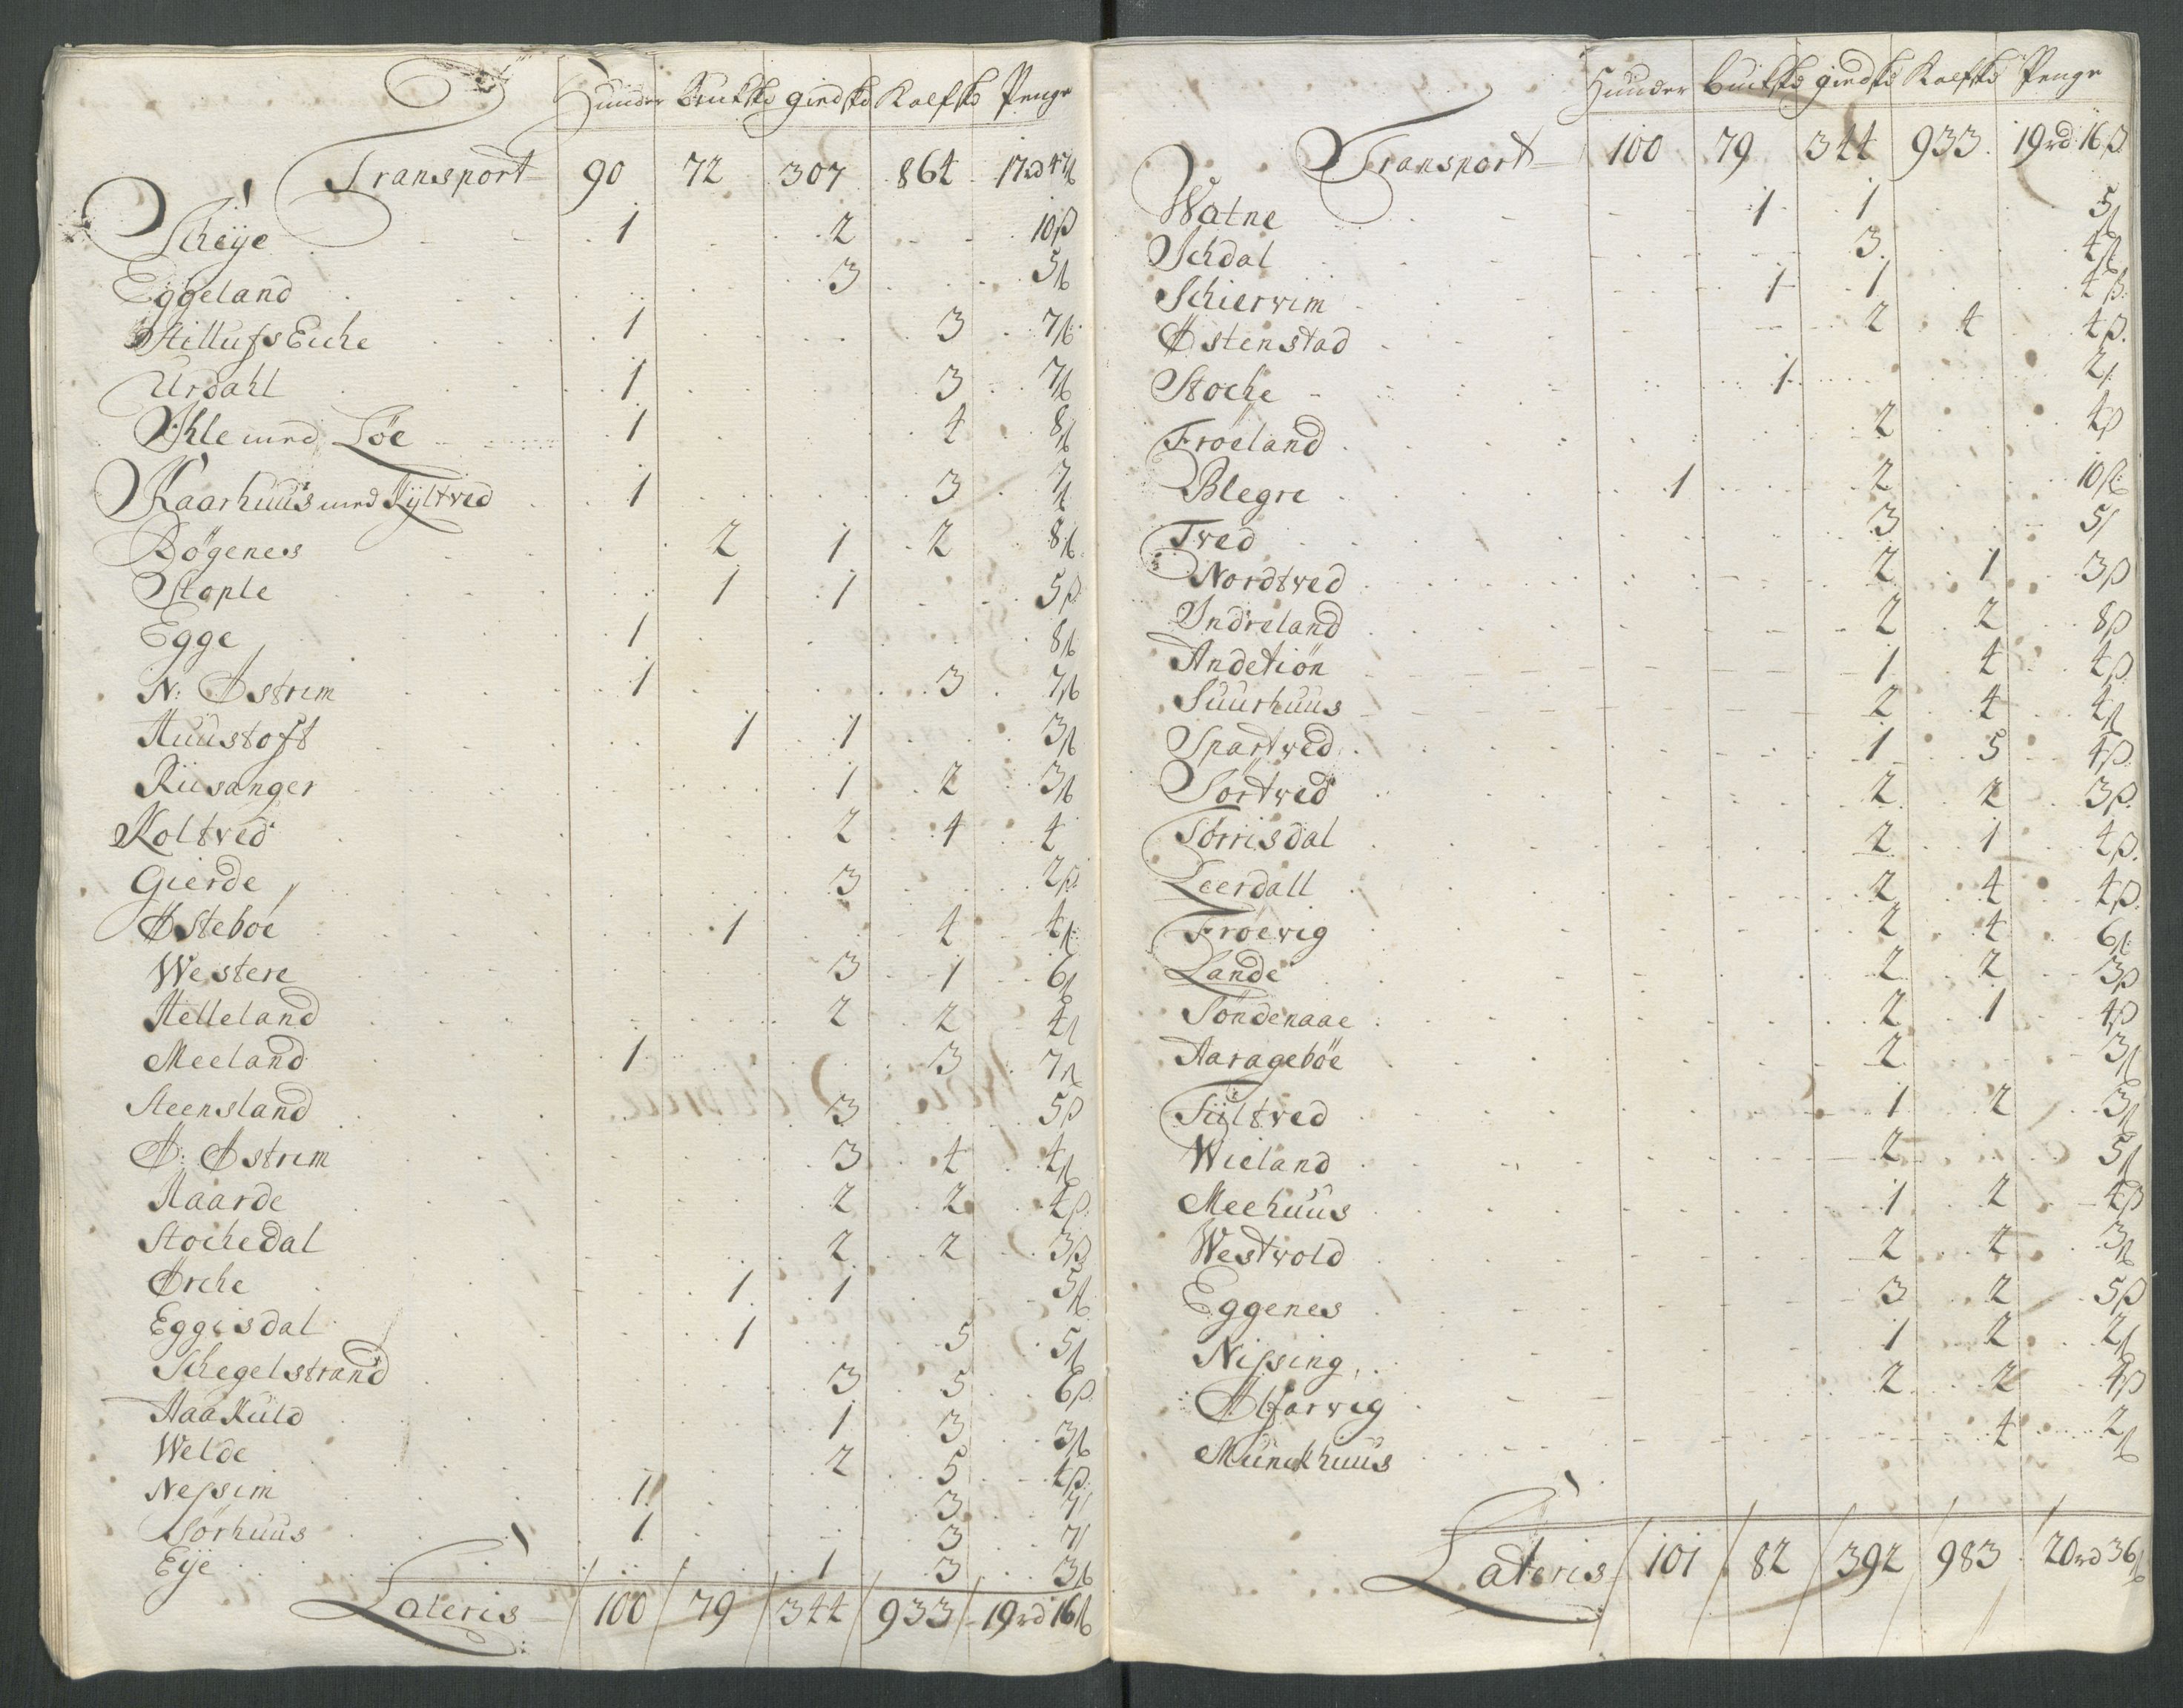 Huuder Buckskd giedskd Kalfskd Penge
Transport 90 72 307 864 17rd 47ß
Scheÿe 1 2 10ß
Eggeland 3 5ß
StillufsEiche 1 3 7ß
Urdahl 1 3 7ß
Ihle med Löe 1 4 8ß
Kaarhuus med Tÿltved 1 3 7ß
Dögenes 2 1 2 8ß
Stople 1 1 5ß
Egge 1 8ß
N: Østrem 1 3 7ß
Huustoft 1 1 3ß
Riisanger 1 2 3ß
Koltved 2 4 4
Gierde 3 2ß
Østeboe 1 4 4ß
Westere 3 1 6ß
Helleland 2 2 4ß
Meeland 1 3 7ß
Steensland 3 5ß
Ø: Østrem 3 4 4ß
Haarde 2 2 4ß
Stochedal 2 2 3ß
Ørche 1 1 5ß
Eggisdal 1 5 5ß
Schegelstrand 3 5 6ß
HaaKuld 1 3 3ß
Welde 2 5 4ß
Nessim 1 3 7ß
Sörhuus 1 3 7ß
Eÿe 1 3 3ß
Lateris 100 79 344 933 19rd 16ß
Huuder Buckskd giedskd Kalfskd Penge
Transport 100 79 344 933 19rd 16ß
Watne 1 1 5ß
Schdal 3 4ß
Schiervim 1 1 4ß
Østenstad 2 4 4ß
Stoche 1 2ß
Fröeland 2 4ß
Blegre 1 2 10ß
Tved 3 5ß
Nordtved 2 1 3ß
Indreland 2 2 8ß
Andetiön 1 4 4ß
Suurhuus 2 4 4ß
Spartved 1 5 4ß
Sörtved 2 2 3ß
Törrisdal 2 1 4ß
Leerdall 2 4 4ß
Fröevig 2 4 6ß
Lande 2 2 3ß
Söndenaae 2 1 4ß
Aarageböe 2 3ß
Tÿltved 1 2 3ß
Wieland 2 5ß
Meehuus 1 2 4ß
Westvold 2 2 3ß
Eggenes 3 2 5ß
Nissing 1 2 2ß
Ølfarvig 2 2 4ß
Munckhuus 4 2ß
Lateris 101 82 392 983 20rd 36ß